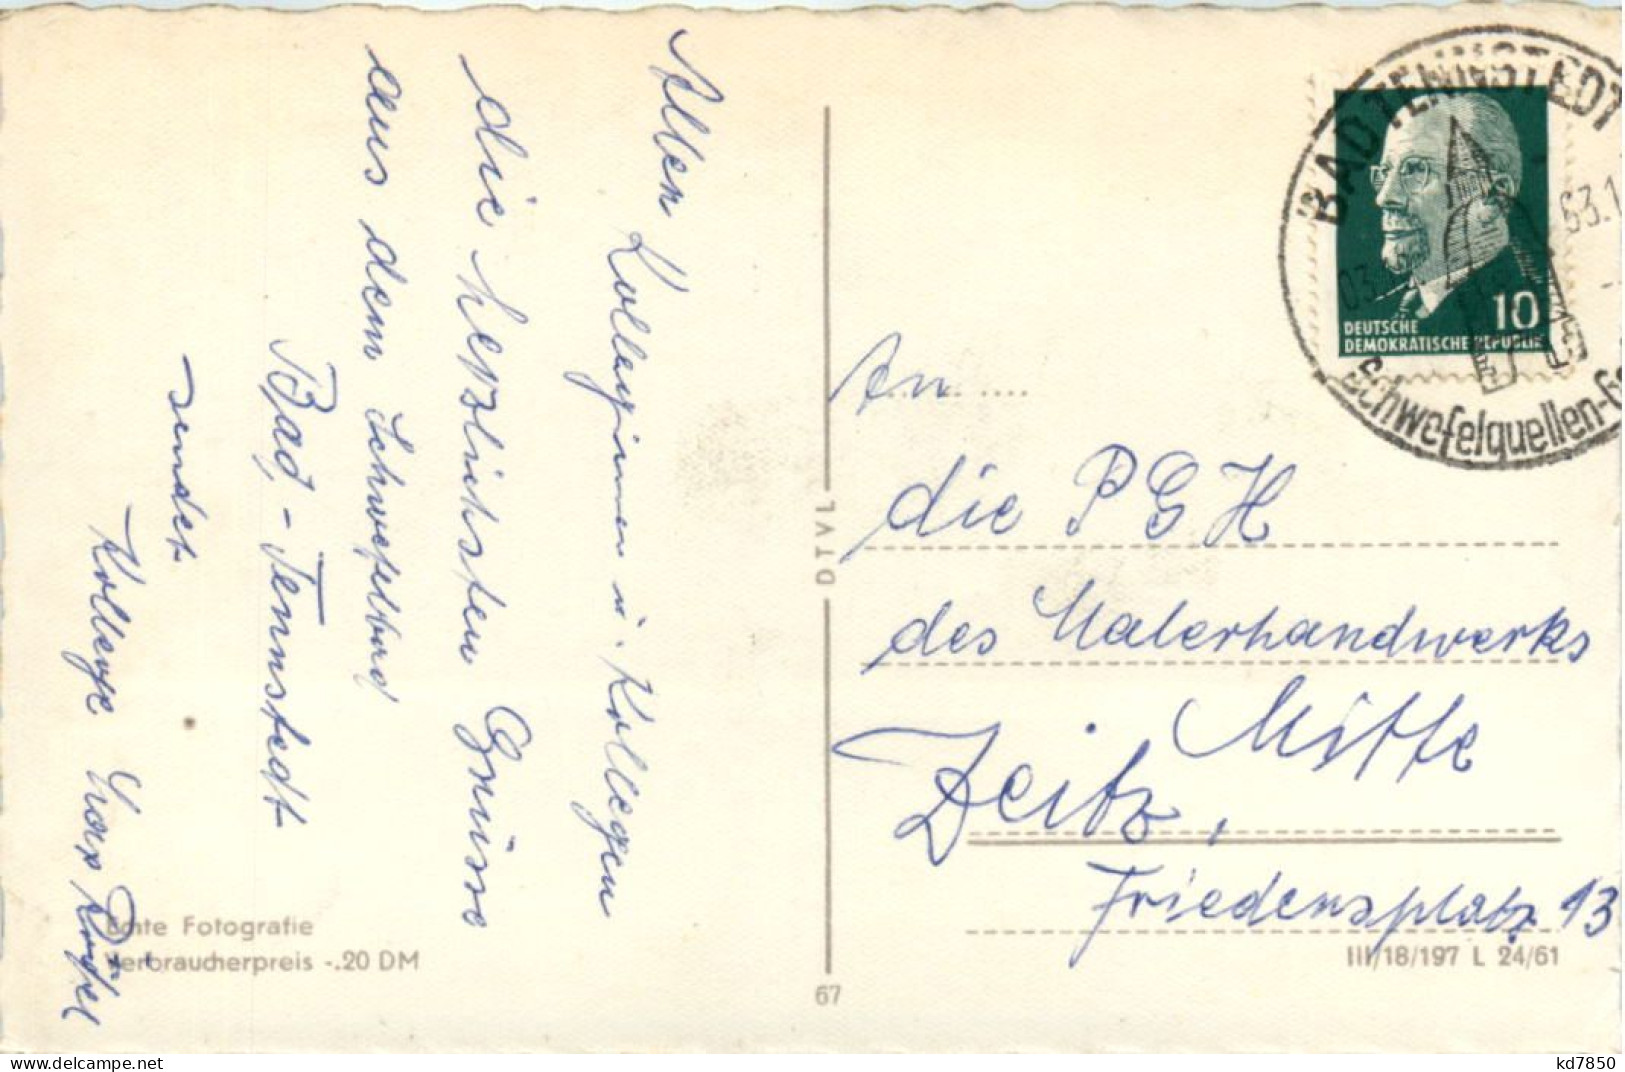 Allen Kolleginnen u. Kollegen
die herzlichsten Grüsse
aus dem Schwefelbad
Bad-Tennstedt
sendet
Kollege
Echte Fotografie
Verbraucherpreis -.20 DM
OTVL
67
BAD TENNSTEDT
63.1
Schwefelquellen-
10
DEUTSCHE
DEMOKRATISCHE REPUBLIK
An
die PGH
des Malerhandwerks
Mitte
Zeitz,
Friedensplatz 13
III/18/197 L 24/61
www.delcampe.net
kd7850